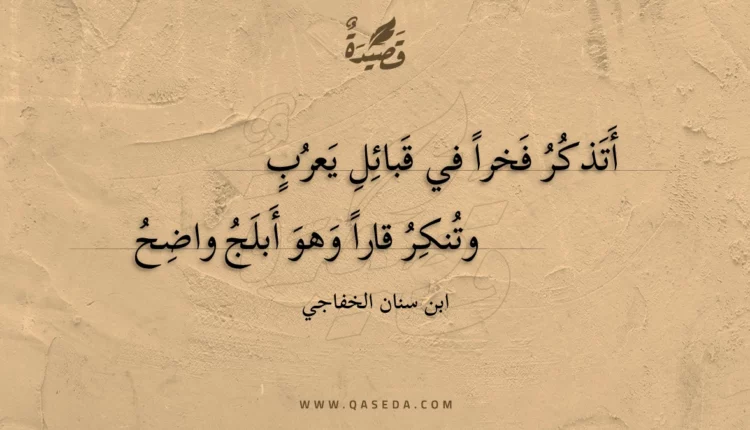 قَصِيدَةٌ
أَتَذكُرُ فَخراً في قَبائِلِ يَعرُبٍ
وتُنكِرُ قاراً وَهوَ أَبلَجُ واضِحُ
ابن سنان الخفاجي
WWW.QASEDA.COM